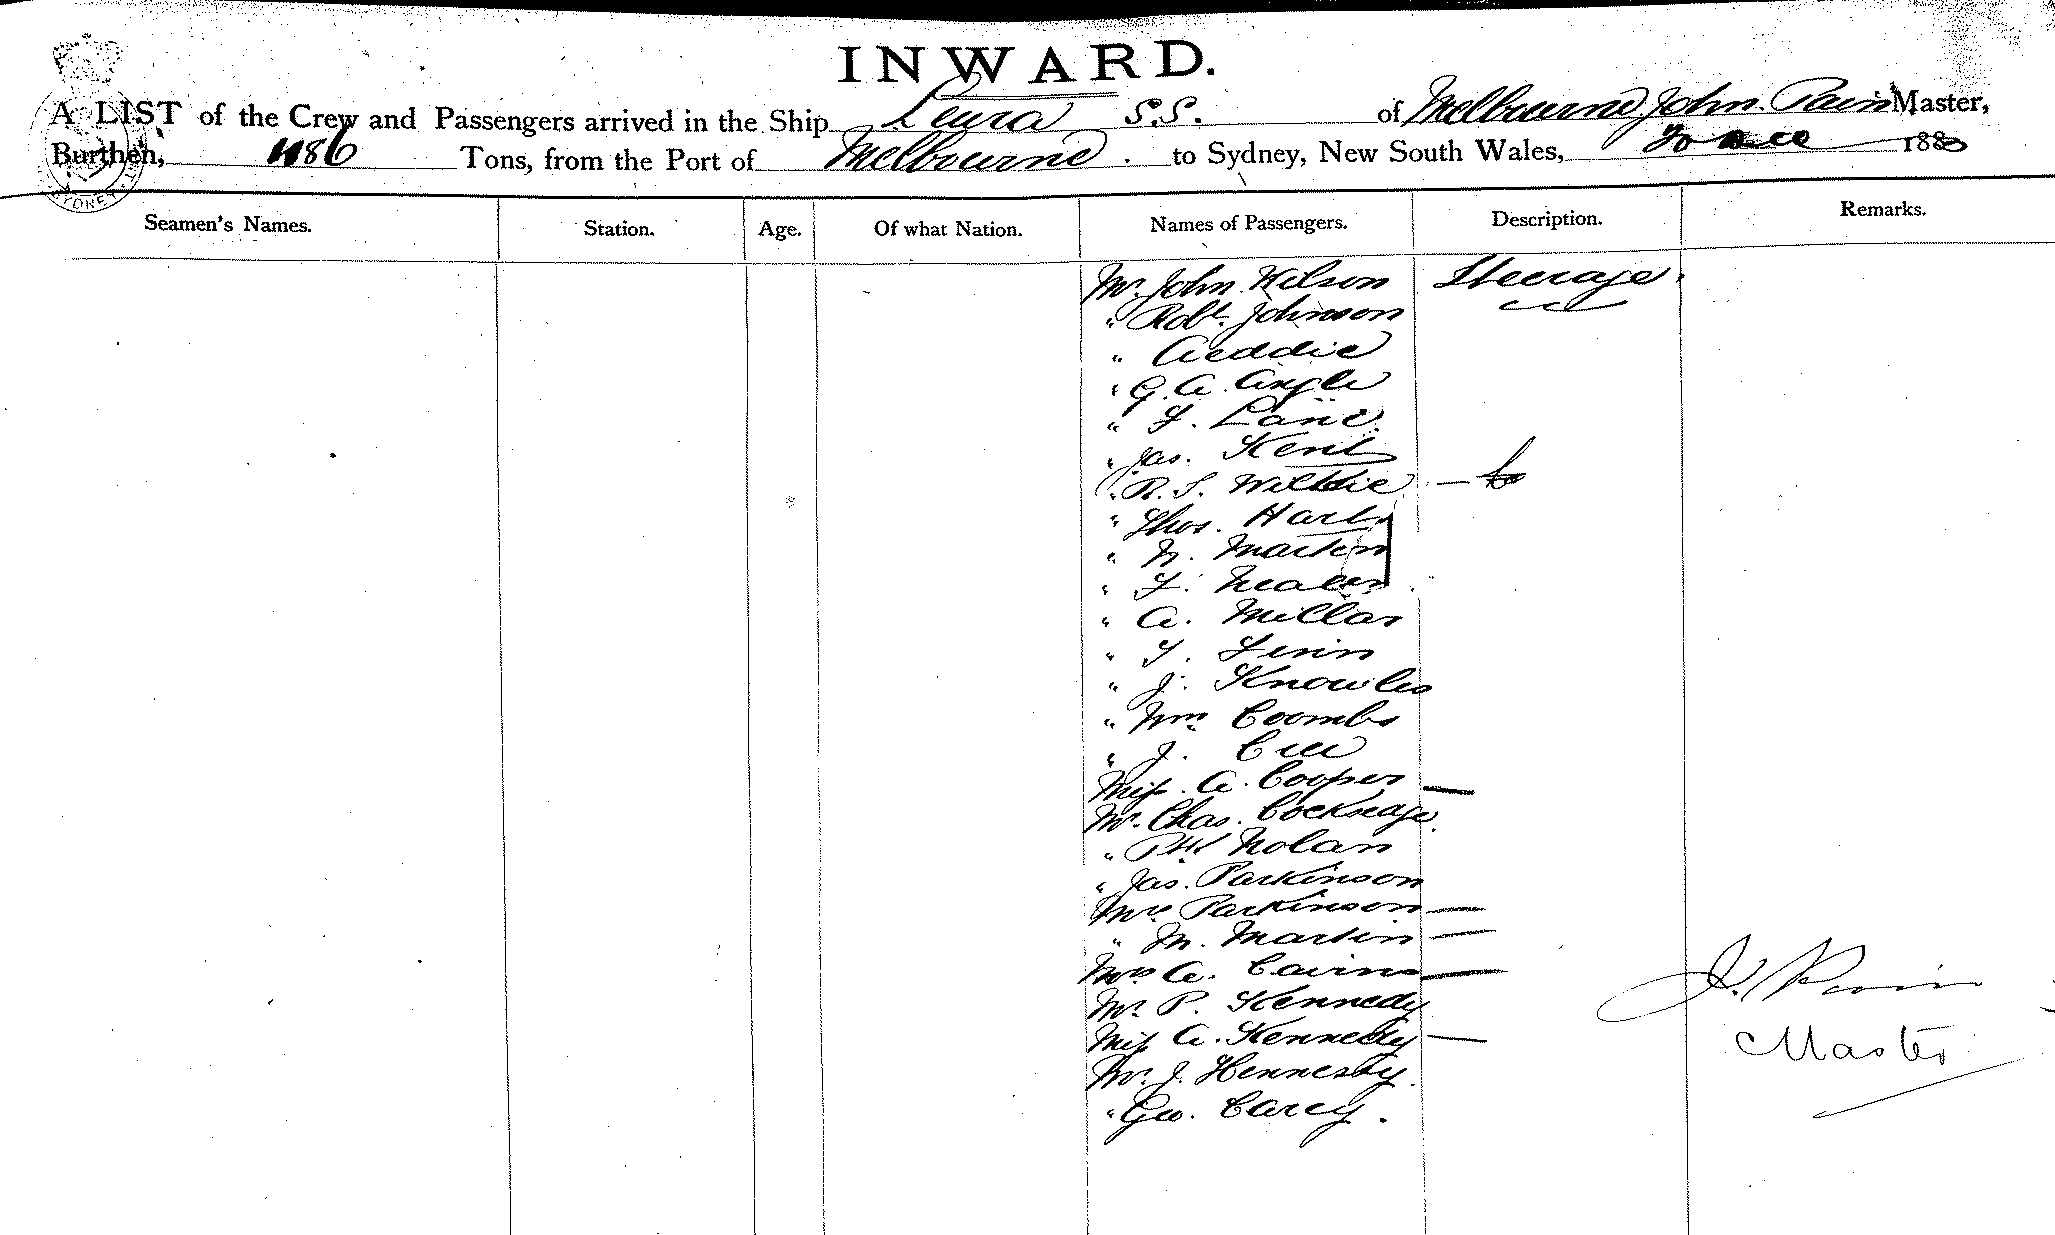 INWARD.
A LIST of the Crew and Passengers arrived in the Ship Leura S.S. of Melbourne John Pain Master,
Burthen, 1186 Tons, from the Port of Melbourne. to Sydney, New South Wales, 188
Seamen's Names. Station. Age. Of what Nation. Names of Passengers. Description. Remarks.
Mr. John Wilson Steerage.
" Robt. Johnson
" Aeddie
" G. A. Angle
" F. Lane
" Jas. Kent
" R. S. Wilkie
" Thos. Hart
" N. Martin
" F.
" A. Millar
" T. Finn
" J. Knowles
" Wm Coombs
" J.
Miss. A. Cooper
Mr. Chas. Cockseage.
" Nolan
" Jas. Parkinson
Mrs Parkinson
" M. Martin
Mrs A. Cairns
Mr. P. Kennedy
Miss A. Kennedy
Mr. J. Hennesty.
" Geo. Carey.
J. Pain
Master
SYDNEY